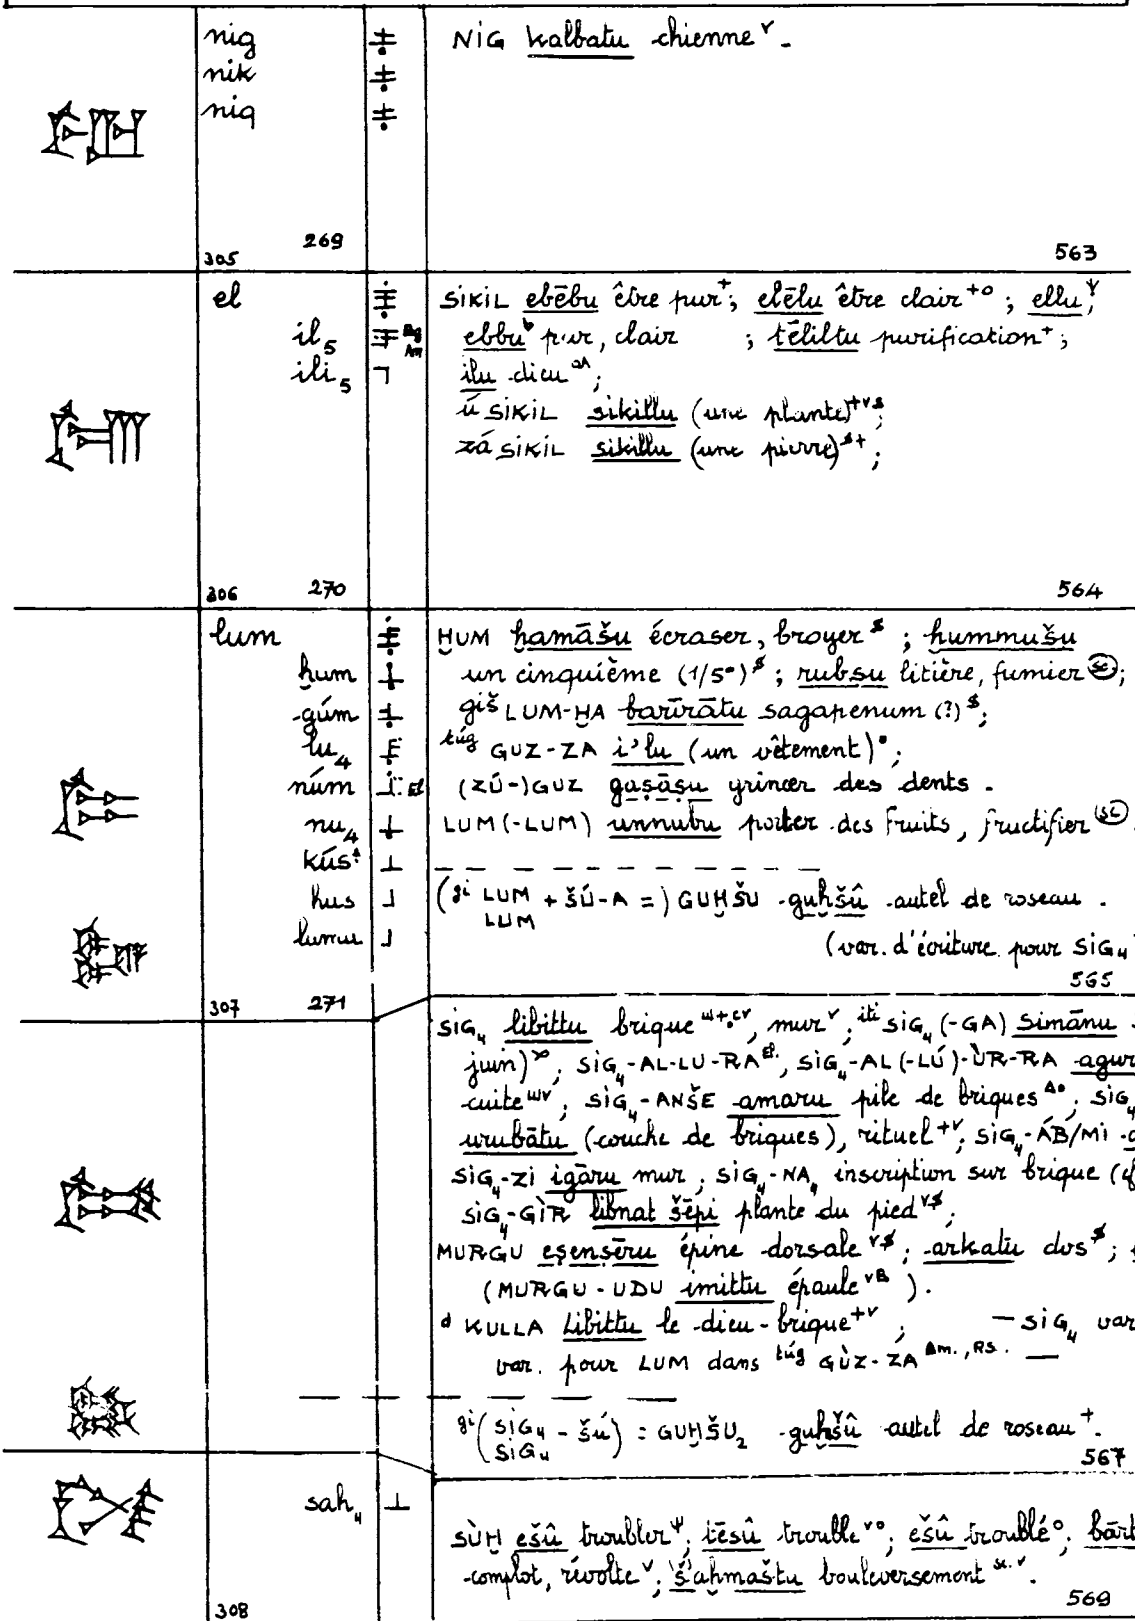 nig NIG kalbatu chienne ᵛ -
nik
niq
305 269 563
el SIKIL ebēbu être pur⁺; elēlu être clair⁺°; ellu,
il₅ ebbu pur, clair ; tēliltu purification⁺;
ili₅ ilu dieu;
ú SIKIL sikillu (une plante);
zá SIKIL sikillu (une pierre);
306 270 564
lum ḪUM ḫamāšu écraser, broyer $ ; ḫummušu
ḫum un cinquième (1/5°) $ ; rubṣu litière, fumier;
gúm giš LUM-ḪA barīrātu sagapenum (?) $;
lu₄ túg GUZ-ZA i'lu (un vêtement)°;
núm (ZÚ-)GUZ gaṣāṣu grincer des dents -
nu₄ LUM(-LUM) unnubu porter des fruits, fructifier
kús
hus (gi LUM + ŠÚ-A =) GUḪŠU guḫšû autel de roseau -
LUM
lumu (var. d'écriture pour SIG₄
565
307 271
SIG₄ libittu brique, mur ᵛ, iti SIG₄ (-GA) Simānu
juin), SIG₄-AL-LU-RA, SIG₄-AL(-LÚ)-ÙR-RA agur
cuite, SIG₄-ANŠE amaru pile de briques; SIG₄
urubātu (couche de briques), rituel⁺ᵛ; SIG₄-ÁB/MI
SIG₄-ZI igāru mur, SIG₄-NA₄ inscription sur brique (cf
SIG₄-GÌR libnat šēpi plante du pied ᵛ$;
MURGU eṣenṣēru épine dorsale ᵛ$; arkatu dos $;
(MURGU-UDU imittu épaule ᵛᴮ).
d KULLA Libittu le dieu-brique⁺ᵛ, — SIG₄ var
var. pour LUM dans túg GÙZ-ZA Am., RS. —
gi (SIG₄ - ŠÚ) = GUḪŠU₂ guḫšû autel de roseau⁺.
SIG₄
567
sah₄
SÙḪ ešû troubler, tēšû trouble ᵛ°; ešû troublé°;
complot, révolte ᵛ; saḫmaštu bouleversement.
308 569